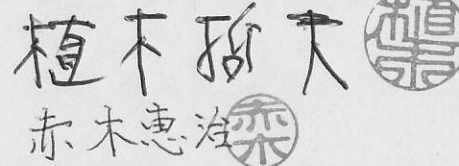 植木夫 植木
赤木恵治 赤木